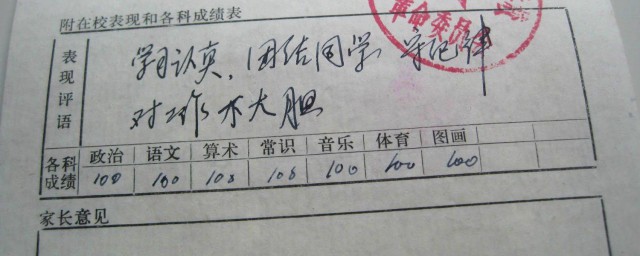 附在校表现和各科成绩表
革命委员会
表现评语
学习认真，团结同学 守纪律
对工作不大胆
各科成绩 政治 语文 算术 常识 音乐 体育 图画
100 100 100 100 100 100 100
家长意见